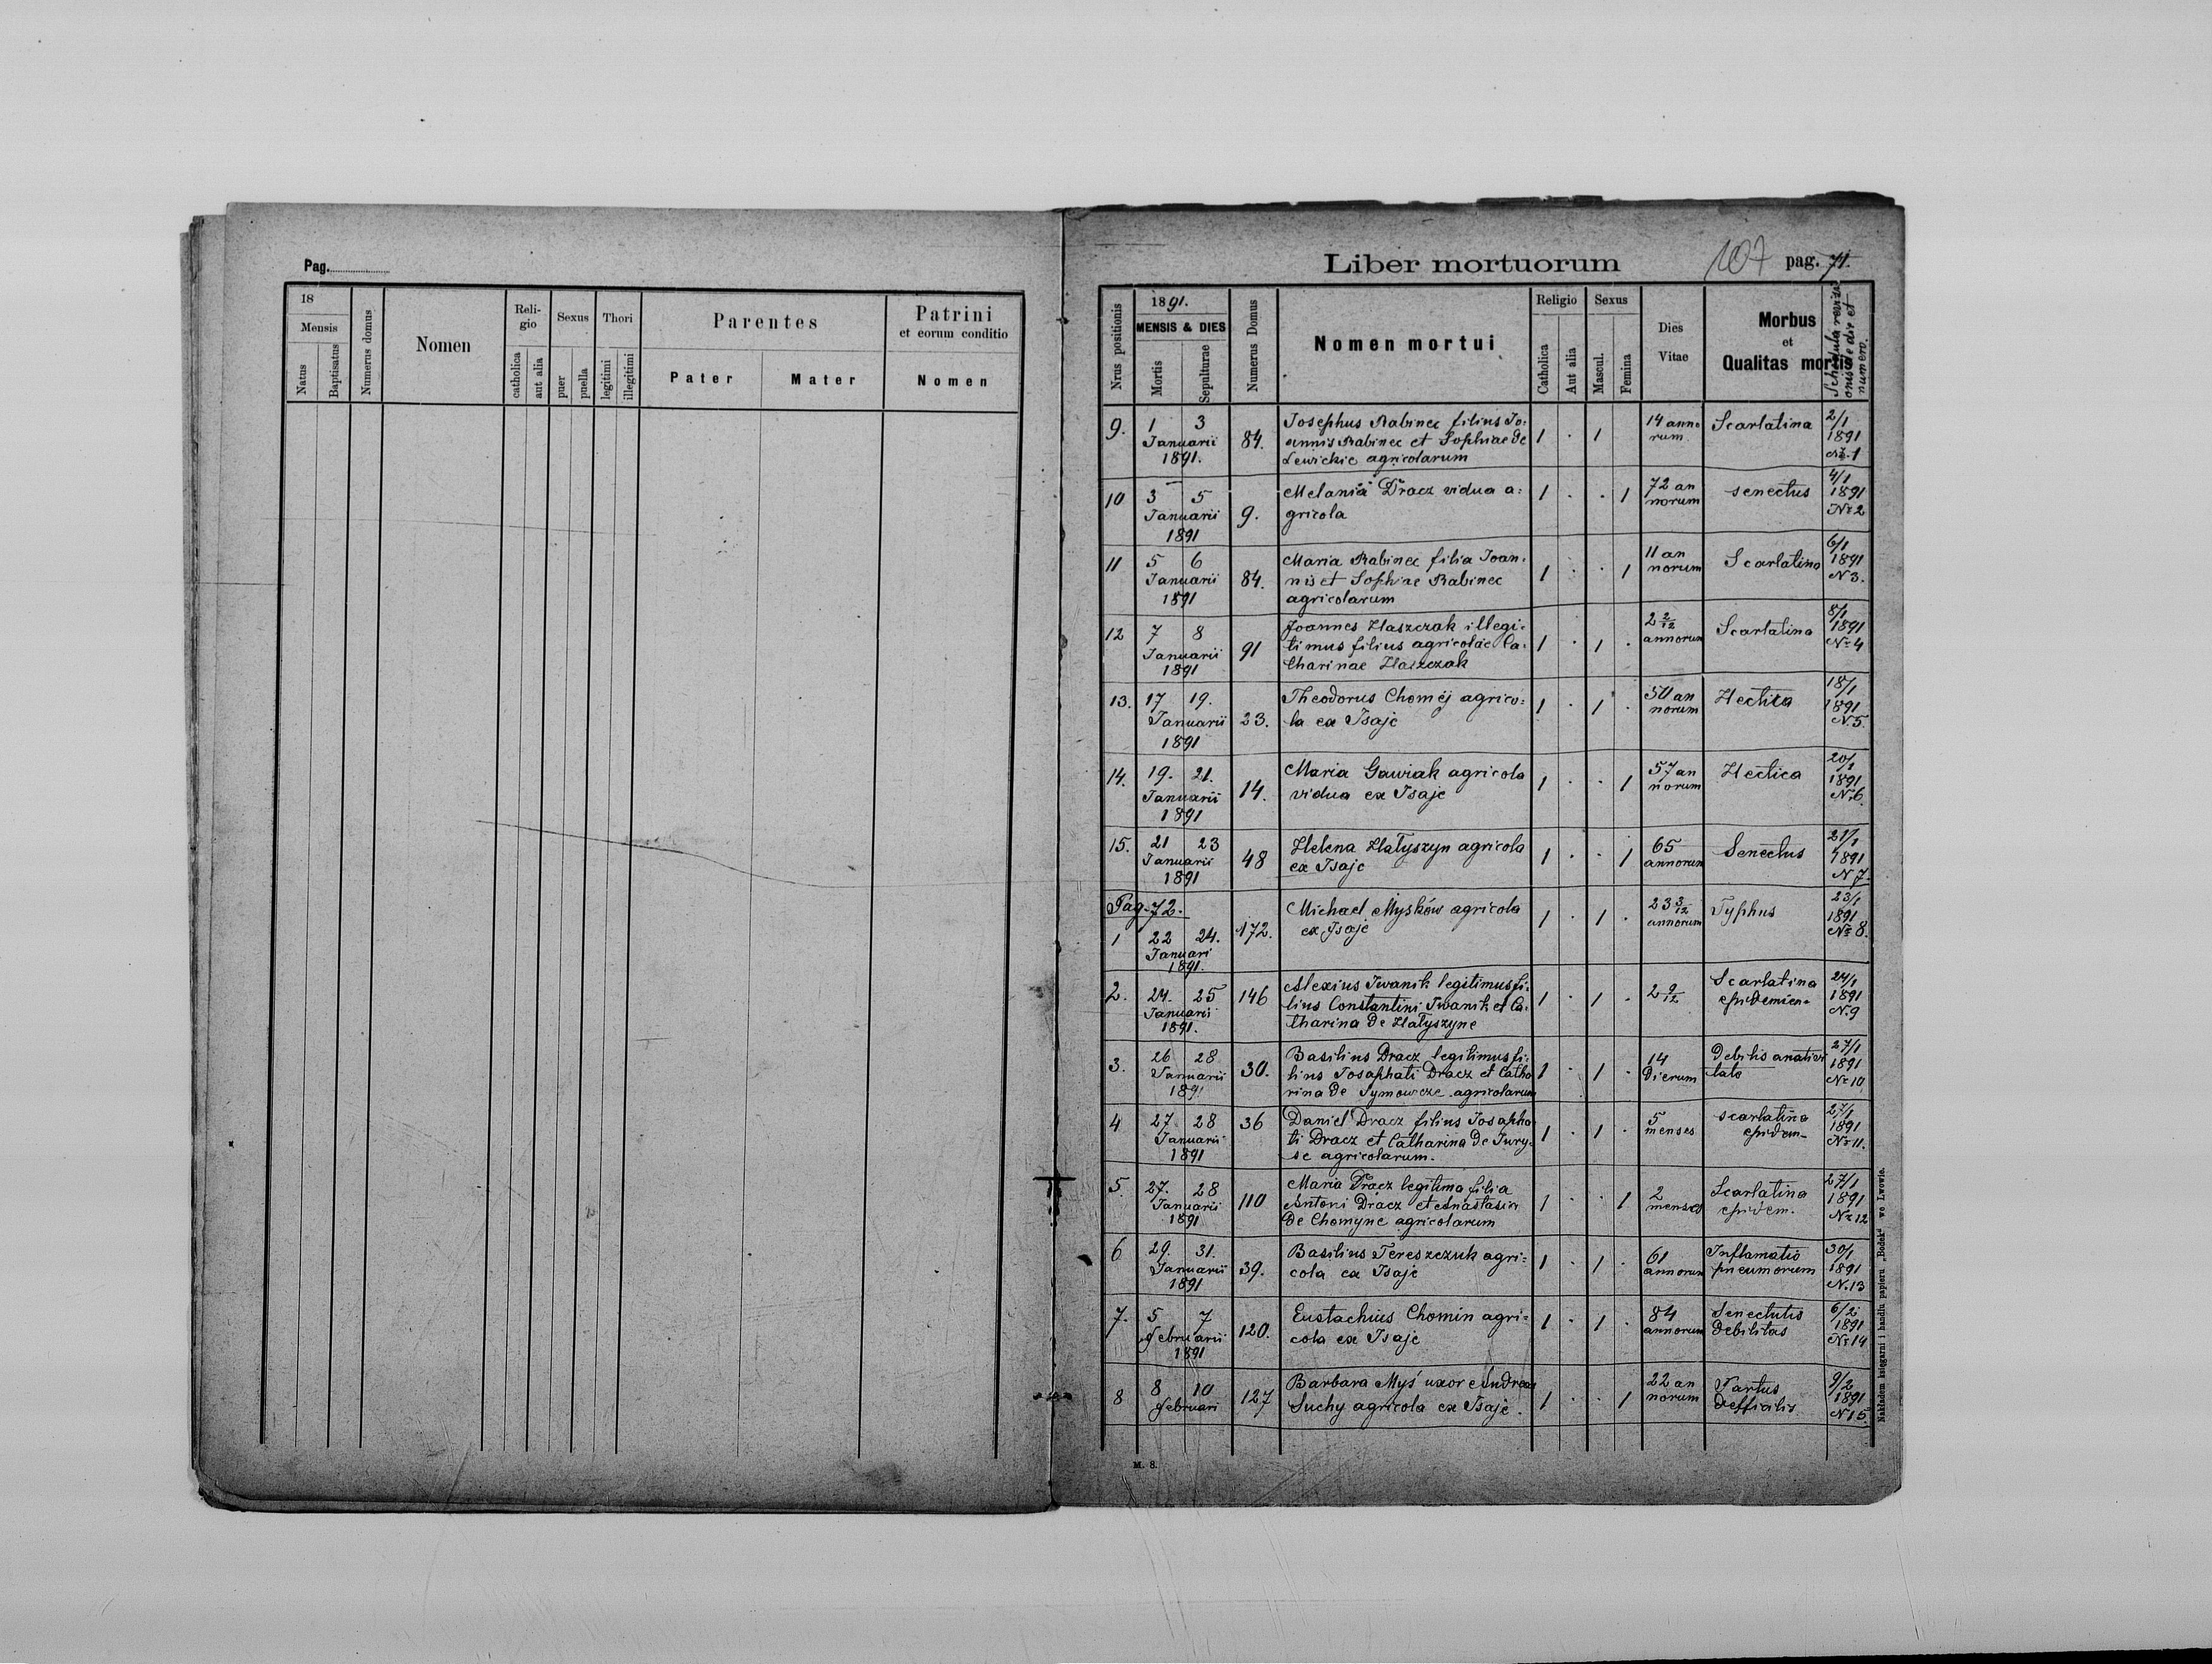 Pag.
18
Mensis
Natus
Baptisatus
Numerus domus
Nomen
Reli-
gio
catholica
aut alia
Sexus
puer
puella
Thori
legitimi
illegitimi
Parentes
Pater
Mater
Patrini
et eorum conditio
Nomen
Liber mortuorum
107
pag. 71.
Nrus positionis
1891.
MENSIS & DIES
Mortis
Sepulturae
Numerus Domus
Nomen mortui
Religio
Catholica
Aut alia
Sexus
Mascul.
Femina
Dies
Vitae
Morbus
et
Qualitas mortis
Schedula revisi
onis de die et
numero.
9. 1 3 84. Josephus Rabinec filius Jo: 1 . 1 14 anno Scarlatina 2/1
Januarii annis Rabinec et Sophiae de rum 1891
1891. Lewickie agricolarum №.1
10 3 5 9. Melania Dracz vidua a: 1 . . 1 72 an senectus 4/1
Januarii gricola norum 1891
1891 № 2
11 5 6 84. Maria Rabinec filia Joan. 1 . . 1 11 an Scarlatina 6/1
Januarii nis et Sophiae Rabinec norum 1891
1891 agricolarum N 3.
12 7 8 91 Joannes Haszczak illegi. 1 . 1 . 2 2/12 Scarlatina 8/1
Januarii timus filius agricolae Ca. annorum 1891
1891 tharinae Haszczak № 4
13. 17 19. 23. Theodorus Choméj agrico: 1 . 1 . 50 an Hectica 18/1
Januarii la ex Isaje norum 1891
1891 N.5.
14. 19. 21. 14. Maria Gawiak agricola 1 . . 1 57 an Hectica 20/1
Januarii vidua ex Isaje norum 1891
1891 N.6.
15. 21 23 48 Helena Hałyszyn agricola 1 . . 1 65 Senectus 21/1
Januarii ex Isaje annorum 1891
1891 N 7.
Pag. 72.
1 22 24. 172. Michael Myśków agricola 1 . 1 . 23 3/12 Typhus 23/1
Januari ex Isaje annorum 1891
1891. № 8.
2. 24. 25 146 Alexius Iwanik legitimus fi. 1 . 1 . 2 9/12 Scarlatina 24/1
Januarii lius Constantini Iwanik et Ca. epidemien= 1891
1891. tharina de Hałyszyne N.9
3. 26 28 30. Basilius Dracz legitimus fi: 1 . 1 . 14 Debilis 27/1
Januarii lius Josaphati Dracz et Catha dierum 1891
1891 rina de Symowcze agricolarum № 10
4 27 28 36 Daniel Dracz filius Josapha 1 . 1 . 5 scarlatina 27/1
Januarii ti Dracz et Catharina de Jury: menses epidem- 1891
1891 se agricolarum. № 11.
5. 27. 28 110 Maria Dracz legitima filia 1 . . 1 2 Scarlatina 27/1
Januarii Antoni Dracz et Anastasia menses epidem. 1891
1891 de Chomyne agricolarum № 12
6 29. 31. 39. Basilius Tereszczuk agri: 1 . 1 . 61 Inflamatio 30/1
Januarii cola ex Isaje annorum pneumorum 1891
1891 N.13
7. 5 7 120. Eustachius Chomin agri: 1 . 1 . 84 Senectutis 6/2
Februarii cola ex Isaje annorum debilitas 1891
1891 № 14
8 8 10 127 Barbara Myś uxor Andreas 1 . . 1 22 an Partus 9/2
Februari Suchy agricola ex Isaje. norum defficilis 1891
N 15.
M. 8.
Nakładem księgarni i handlu papieru „Bodek" we Lwowie.